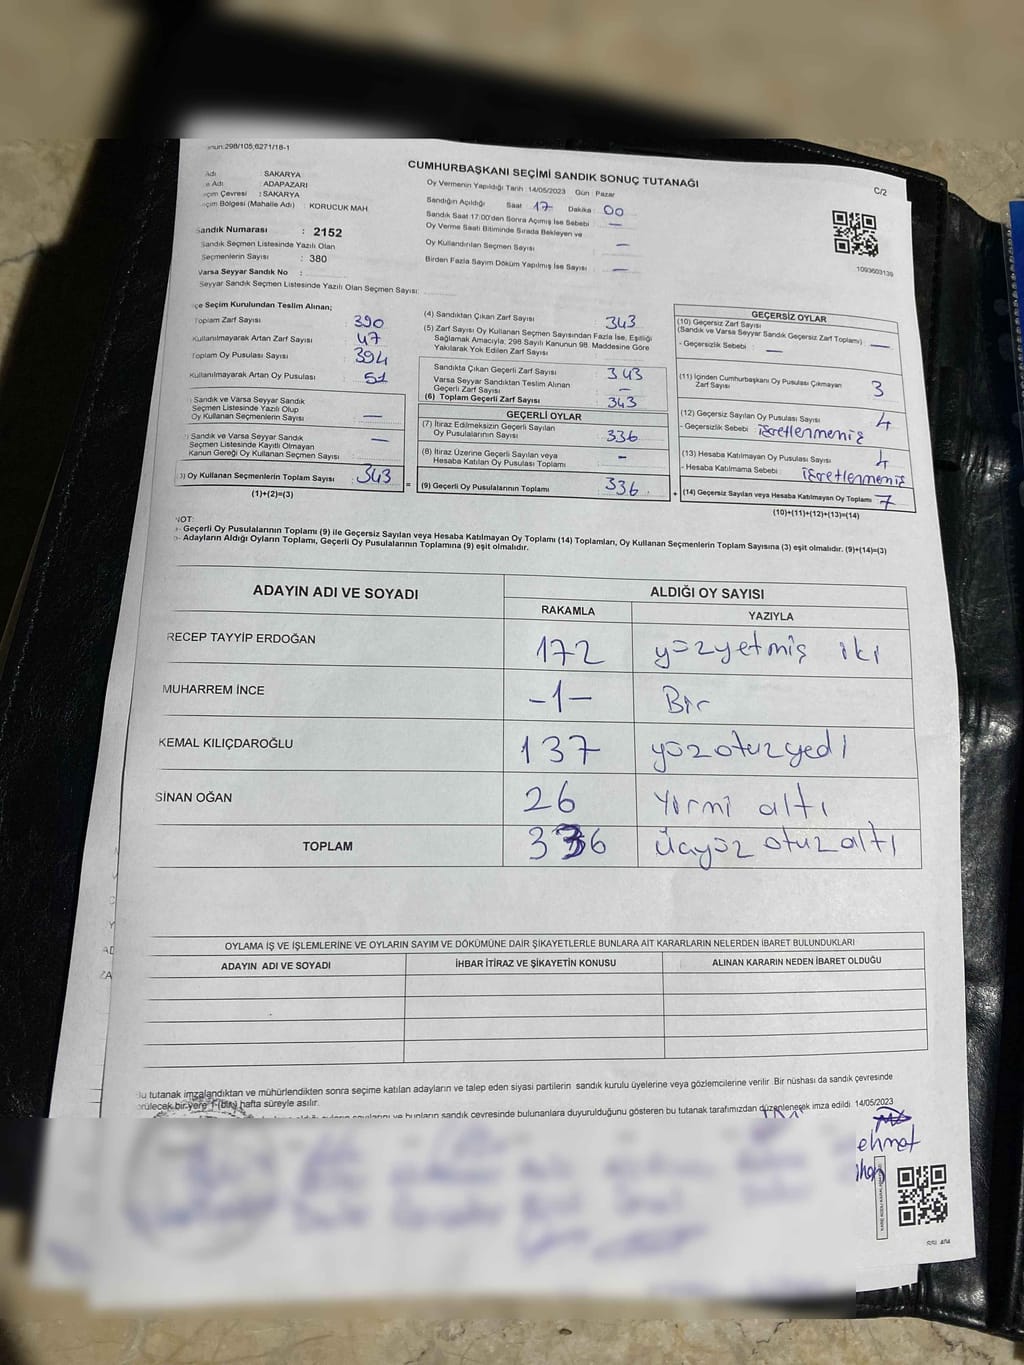 298/105,6271/18-1
CUMHURBAŞKANI SEÇİMİ SANDIK SONUÇ TUTANAĞI
C/2
: SAKARYA
: ADAPAZARI
Çevresi : SAKARYA
Bölgesi (Mahalle Adı) : KORUCUK MAH.
Sandık Numarası : 2152
Sandık Seçmen Listesinde Yazılı Olan
Seçmenlerin Sayısı : 380
Varsa Seyyar Sandık No :
Seyyar Sandık Seçmen Listesinde Yazılı Olan Seçmen Sayısı:
Oy Vermenin Yapıldığı Tarih 14/05/2023 Gün : Pazar
Sandığın Açıldığı Saat 17 Dakika 00
Sandık Saat 17:00'den Sonra Açılmış İse Sebebi —
Oy Verme Saati Bitiminde Sırada Bekleyen ve
Oy Kullandırılan Seçmen Sayısı —
Birden Fazla Sayım Döküm Yapılmış İse Sayısı —
1093603139
Seçim Kurulundan Teslim Alınan;
Toplam Zarf Sayısı : 390
Kullanılmayarak Artan Zarf Sayısı : 47
Toplam Oy Pusulası Sayısı : 394
Kullanılmayarak Artan Oy Pusulası : 51
Sandık ve Varsa Seyyar Sandık
Seçmen Listesinde Yazılı Olup
Oy Kullanan Seçmenlerin Sayısı : —
Sandık ve Varsa Seyyar Sandık —
Seçmen Listesinde Kayıtlı Olmayan
Kanun Gereği Oy Kullanan Seçmen Sayısı:
(3) Oy Kullanan Seçmenlerin Toplam Sayısı : 343
(1)+(2)=(3)
(4) Sandıktan Çıkan Zarf Sayısı : 343
(5) Zarf Sayısı Oy Kullanan Seçmen Sayısından Fazla İse, Eşitliği
Sağlamak Amacıyla, 298 Sayılı Kanunun 98. Maddesine Göre
Yakılarak Yok Edilen Zarf Sayısı
Sandıkta Çıkan Geçerli Zarf Sayısı : 343
Varsa Seyyar Sandıktan Teslim Alınan
Geçerli Zarf Sayısı : —
(6) Toplam Geçerli Zarf Sayısı : 343
GEÇERLİ OYLAR
(7) İtiraz Edilmeksizin Geçerli Sayılan
Oy Pusulalarının Sayısı : 336
(8) İtiraz Üzerine Geçerli Sayılan veya
Hesaba Katılan Oy Pusulası Toplamı : -
= (9) Geçerli Oy Pusulalarının Toplamı : 336
GEÇERSİZ OYLAR
(10) Geçersiz Zarf Sayısı
(Sandık ve Varsa Seyyar Sandık Geçersiz Zarf Toplamı) : —
- Geçersizlik Sebebi : —
(11) İçinden Cumhurbaşkanı Oy Pusulası Çıkmayan
Zarf Sayısı : 3
(12) Geçersiz Sayılan Oy Pusulası Sayısı : 4
- Geçersizlik Sebebi : işretlenmeniş
(13) Hesaba Katılmayan Oy Pusulası Sayısı : 4
- Hesaba Katılmama Sebebi : işretlenmeniş
+ (14) Geçersiz Sayılan veya Hesaba Katılmayan Oy Toplamı : 7
(10)+(11)+(12)+(13)=(14)
NOT:
- Geçerli Oy Pusulalarının Toplamı (9) ile Geçersiz Sayılan veya Hesaba Katılmayan Oy Toplamı (14) Toplamları, Oy Kullanan Seçmenlerin Toplam Sayısına (3) eşit olmalıdır. (9)+(14)=(3)
- Adayların Aldığı Oyların Toplamı, Geçerli Oy Pusulalarının Toplamına (9) eşit olmalıdır.
ADAYIN ADI VE SOYADI
ALDIĞI OY SAYISI
RAKAMLA YAZIYLA
RECEP TAYYİP ERDOĞAN 172 yüzyetmiş iki
MUHARREM İNCE -1- Bir
KEMAL KILIÇDAROĞLU 137 yüzotuzyedi
SİNAN OĞAN 26 Yirmi altı
TOPLAM 336 Üçyüz otuz altı
OYLAMA İŞ VE İŞLEMLERİNE VE OYLARIN SAYIM VE DÖKÜMÜNE DAİR ŞİKAYETLERLE BUNLARA AİT KARARLARIN NELERDEN İBARET BULUNDUKLARI
ADAYIN ADI VE SOYADI İHBAR İTİRAZ VE ŞİKAYETİN KONUSU ALINAN KARARIN NEDEN İBARET OLDUĞU
Bu tutanak imzalandıktan ve mühürlendikten sonra seçime katılan adayların ve talep eden siyasi partilerin sandık kurulu üyelerine veya gözlemcilerine verilir. Bir nüshası da sandık çevresinde
bir yere 1 (bir) hafta süreyle asılır.
ve bunların sandık çevresinde bulunanlara duyurulduğunu gösteren bu tutanak tarafımızdan düzenlenerek imza edildi. 14/05/2023
ehmet